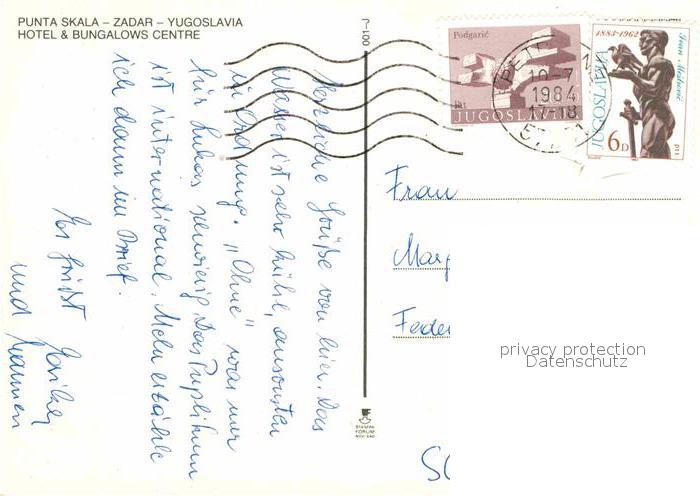 PUNTA SKALA – ZADAR – YUGOSLAVIA
HOTEL & BUNGALOWS CENTRE
Herzliche Grüße von hier. Das
Wasser ist sehr kühl, ansonsten
in Ordnung. "Ohne" war nur
für Lukas schwierig. Das Puplikum
ist international. Mehr erzähle
ich dann im Brief.
Es grüßt
und
Podgarić
JUGOSLAVIJA
1883-1962
Ivan Meštrović
JUGOSLAVIJA
6D
ptt
10-7
1984
17-18
Frau
Mar
Feder
privacy protection
Datenschutz